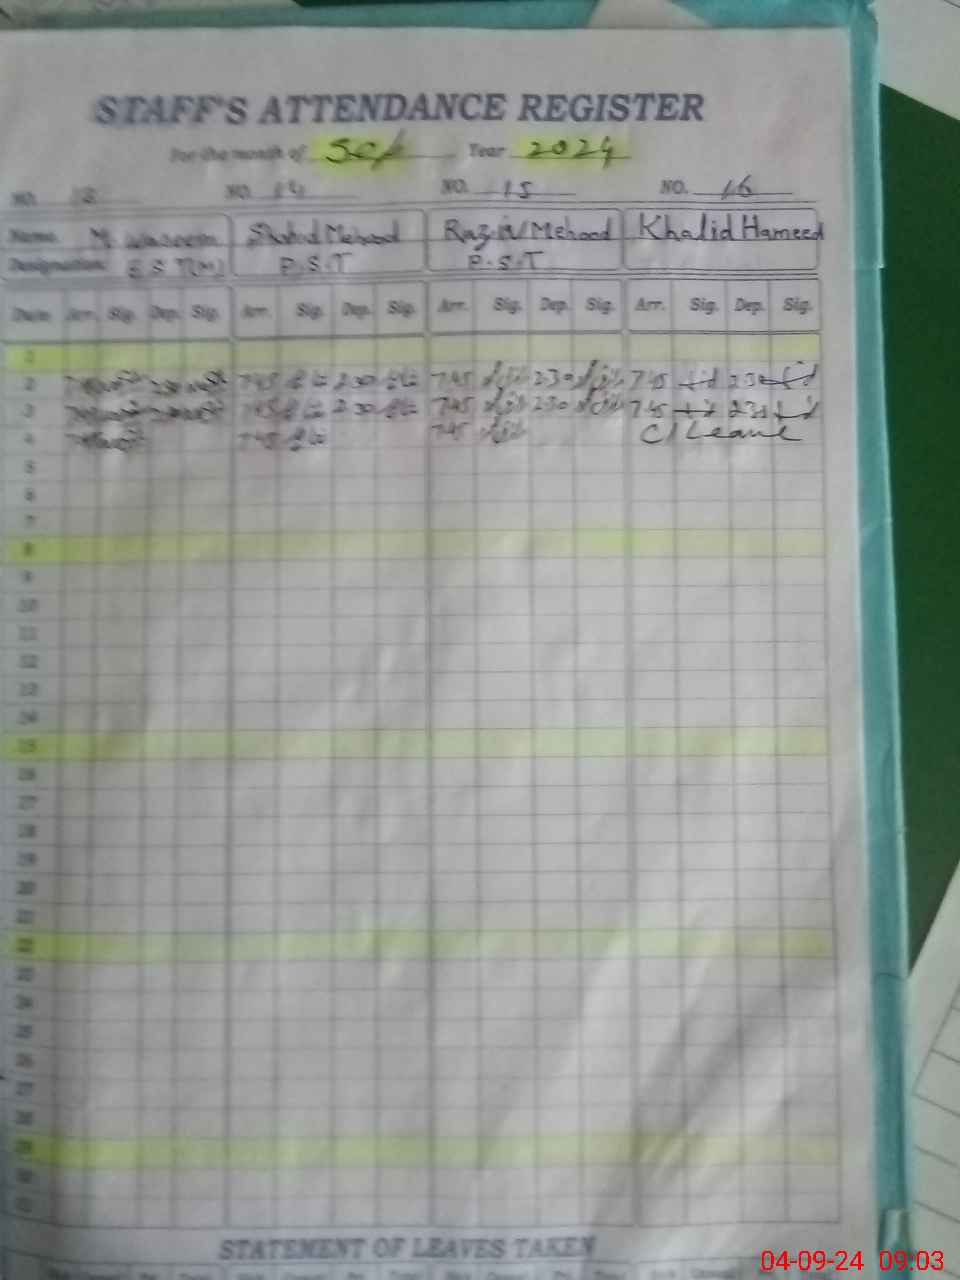 STAFF'S ATTENDANCE REGISTER
For the month of Sep Year 2024
NO. 13 NO. 14 NO. 15 NO. 16
Name. M. Waseem Shahid Mehood Razia Mehood Khalid Hameed
Designation. E S T(M) P.S.T P.S.T
Date Arr. Sig. Dep. Sig. Arr. Sig. Dep. Sig. Arr. Sig. Dep. Sig. Arr. Sig. Dep. Sig.
1
2 7:45 2:30 7:45 2:30 7:45 2:30 7:45 2:30
3 7:45 2:30 7:45 2:30 7:45 2:30 7:45 2:30
4 7:45 7:45 7:45 C/Leave
5
6
7
8
9
10
11
12
13
14
15
16
17
18
19
20
21
22
23
24
25
26
27
28
29
30
31
STATEMENT OF LEAVES TAKEN
04-09-24 09:03